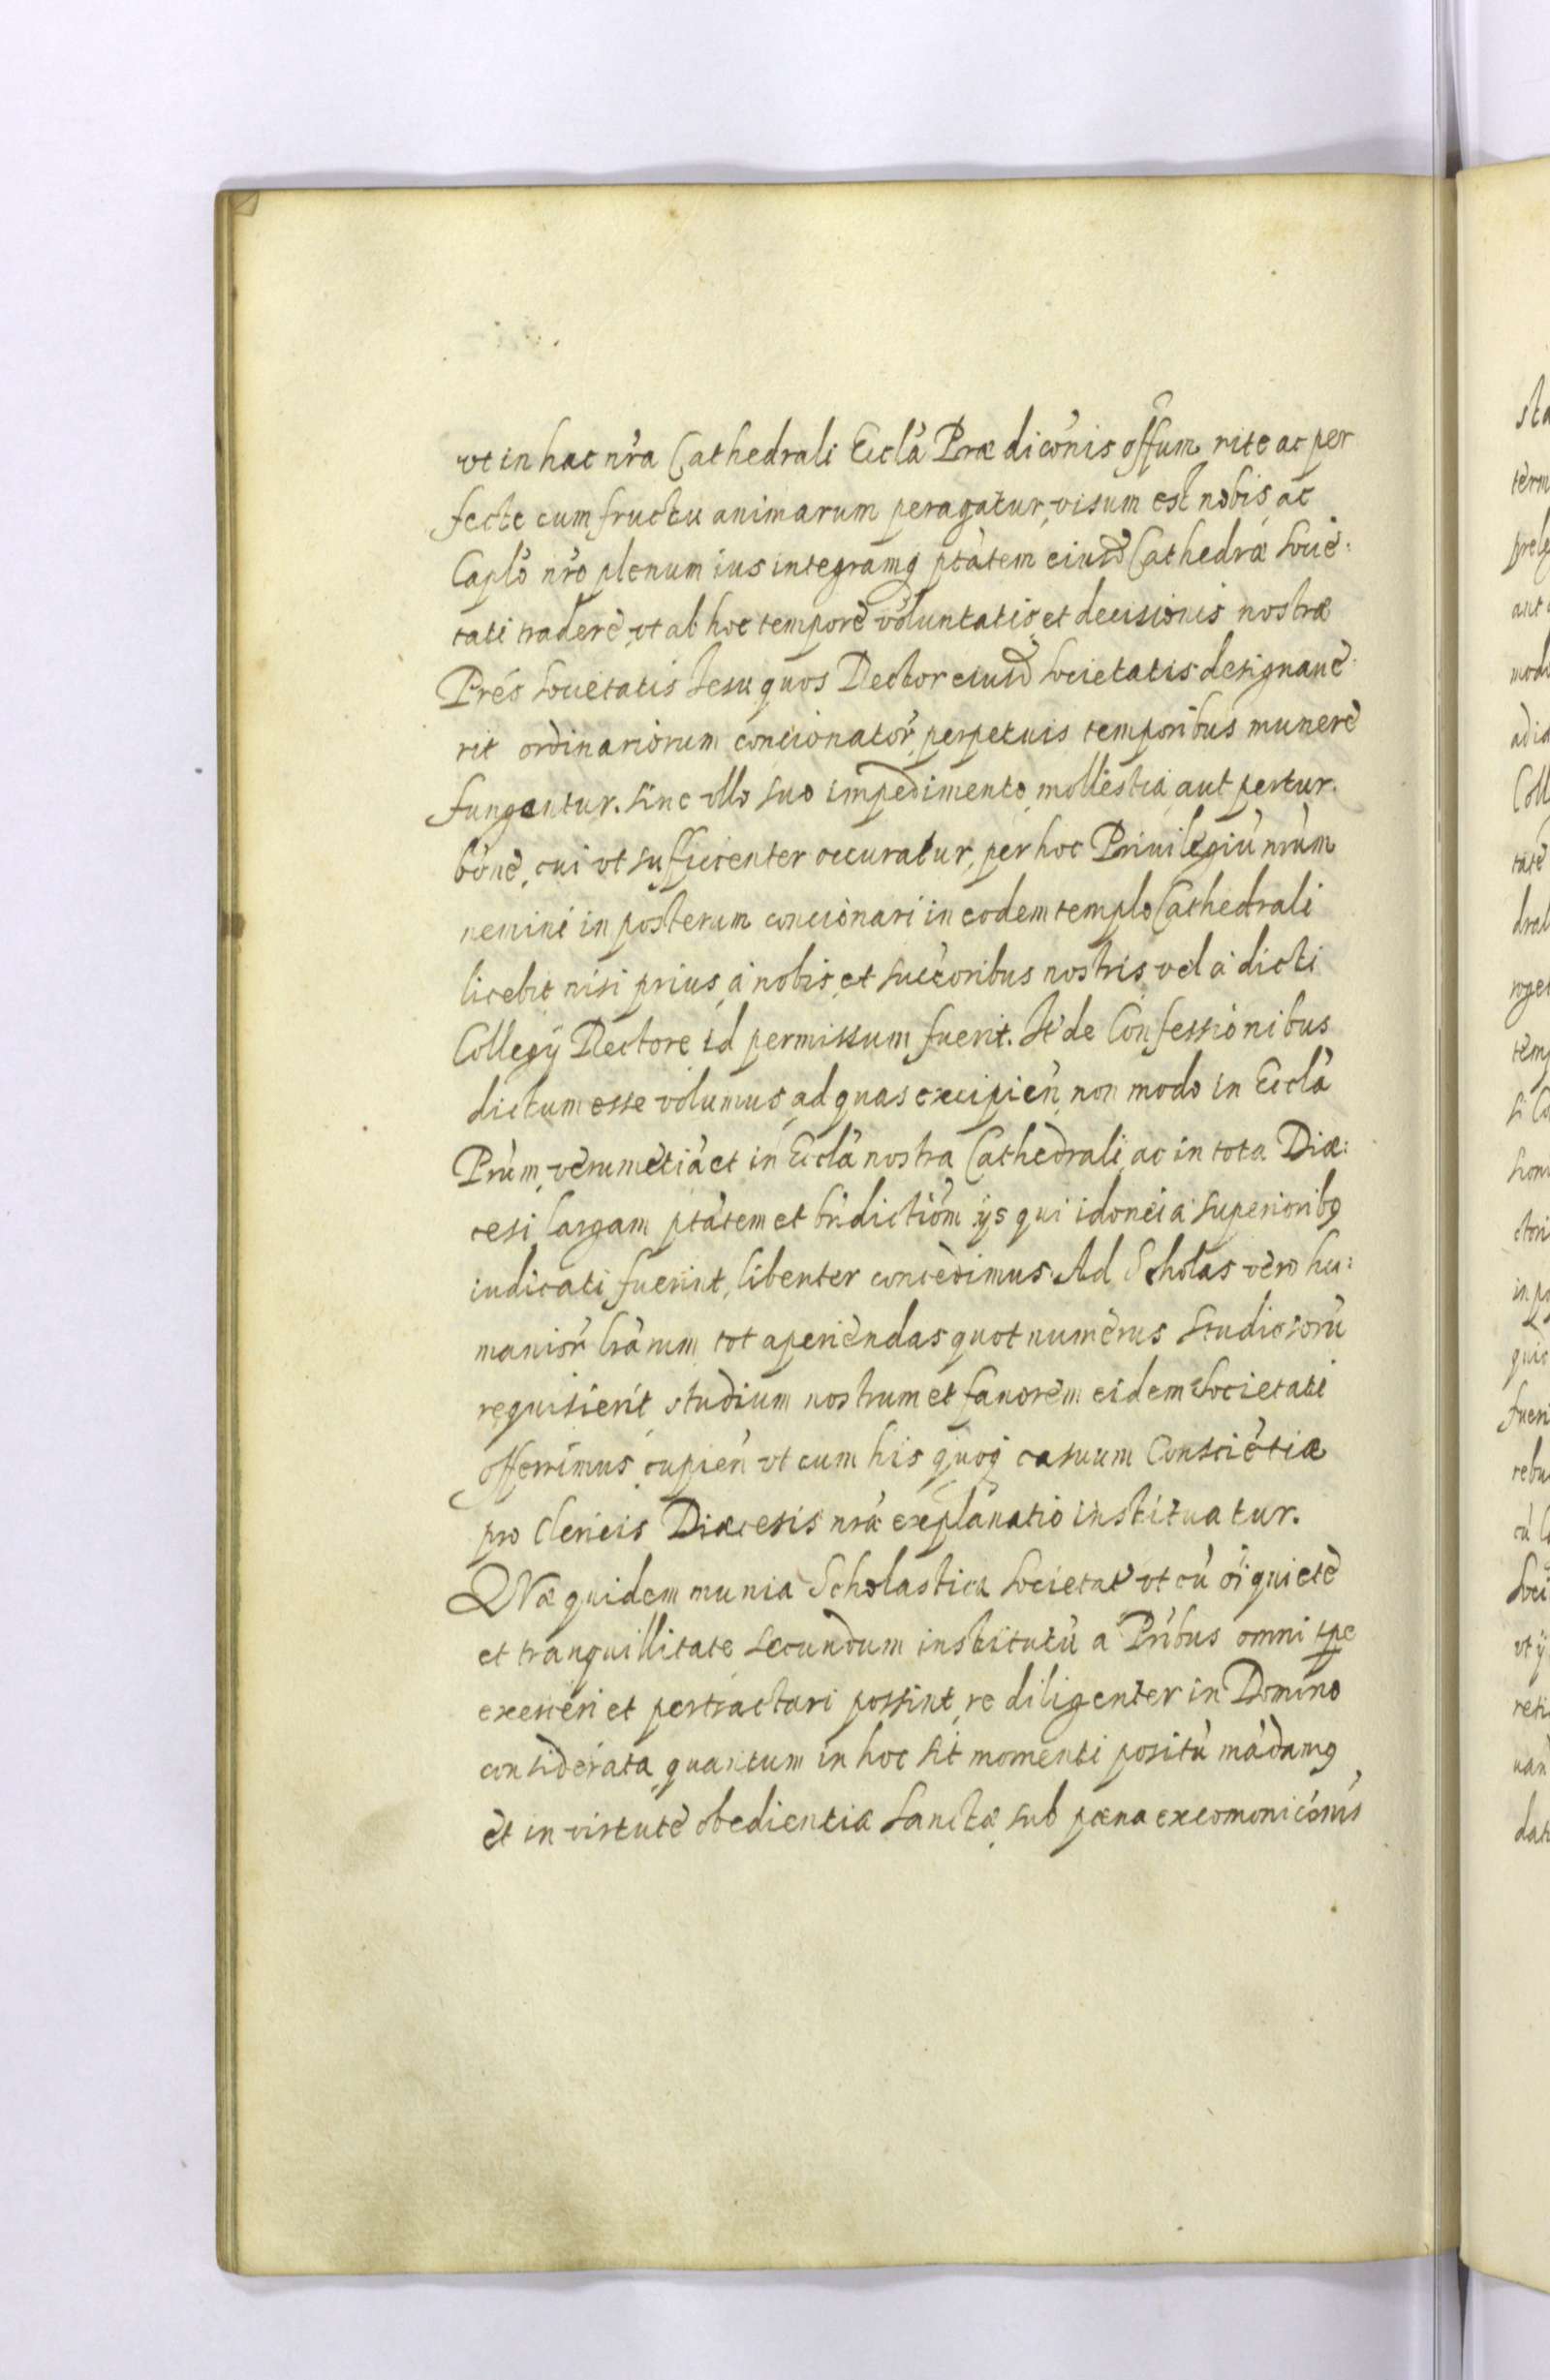 vt in hac nr̃a Cathedrali Ecclã Prædicõnis offum rite ac per
fecte cum fructu animarum peragatur, visum est nobis, ac
Caplõ nr̃o plenum ius integramq ptãtem eiusd Cathedræ Socie:
tati tradere, vt ab hoc tempore voluntatis, et decisionis nostræ
Prẽs Societatis Iesu quos Rector eiusd Societatis designaue:
rit ordinariorum concionatõr perpetuis temporibus munere
fungantur. sine vllo suo impedimento mollestia aut pertur.
bõne, cui vt sufficienter occuratur, per hoc Priuilegiũ nr̃um
nemini in posterum concionari in eodem templo Cathedrali
licebit nisi prius a nobis, et succoribus nostris vel a dicti
Collegij Rectore id permissum fuerit. Itẽ de Confessionibus
dictum esse volumus, ad quas excipieñ, non modo in Ecclã
Prũm, verumetiã et in Ecclã nostra Cathedrali, ac in tota Diæ:
cesi largam ptãtem et iurĩdictiõm ijs qui idonei a superioribq
iudicati fuerint, libenter concedimus. Ad Scholas vero hu:
maniõr lrãrum tot aperiendas quot numerus studiosorũ
requisierit studium nostrum et fauorem eidem Societati
offerrimus, cupieñ vt cum his quoq casuum Consciẽtiæ
pro clericis Diæcesis nr̃æ explanatio instituatur.
QVæ quidem munia Scholastica Societat vt cũ oĩ quiete
et tranquillitate secundum institutũ a Prĩbus omni tpe
exerceri et pertractari possint, re diligenter in Domino
considerata, quantum in hoc sit momenti positũ mãdamq
et in virtute obedientiæ sanctæ, sub pæna excomonicõnis